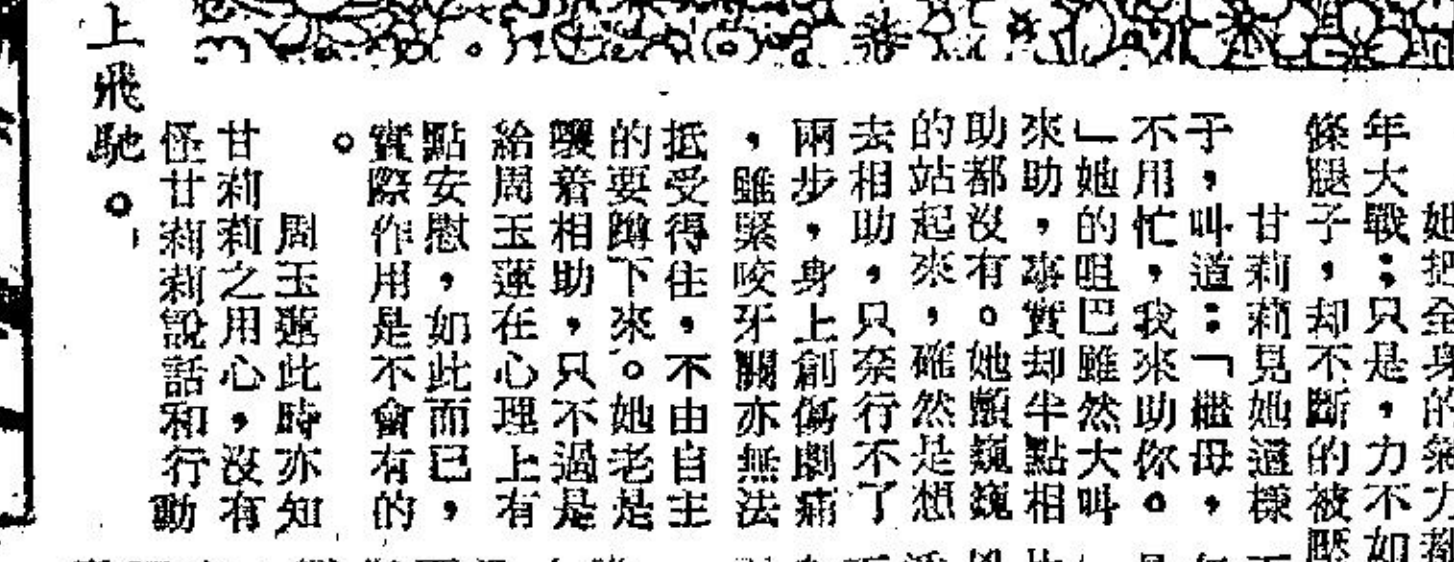 她把全身的氣力都
年大戰；只是，力不如
條腿子，却不斷的被壓
甘莉莉見她這樣
于，叫道：「繼母，
不用忙，我來助你。
」她的咀巴雖然大叫
來助，事實却半點相
助都沒有。她顫巍巍
的站起來，確然是想
去相助，只奈行不了
兩步，身上創傷劇痛
，雖緊咬牙關亦無法
抵受得住，不由自主
的要蹲下來。她老是
嚷着相助，只不過是
給周玉蓮在心理上有
點安慰，如此而已，
實際作用是不會有的
。
周玉蓮此時亦知
甘莉莉之用心，沒有
怪甘莉莉說話和行動
上飛馳。